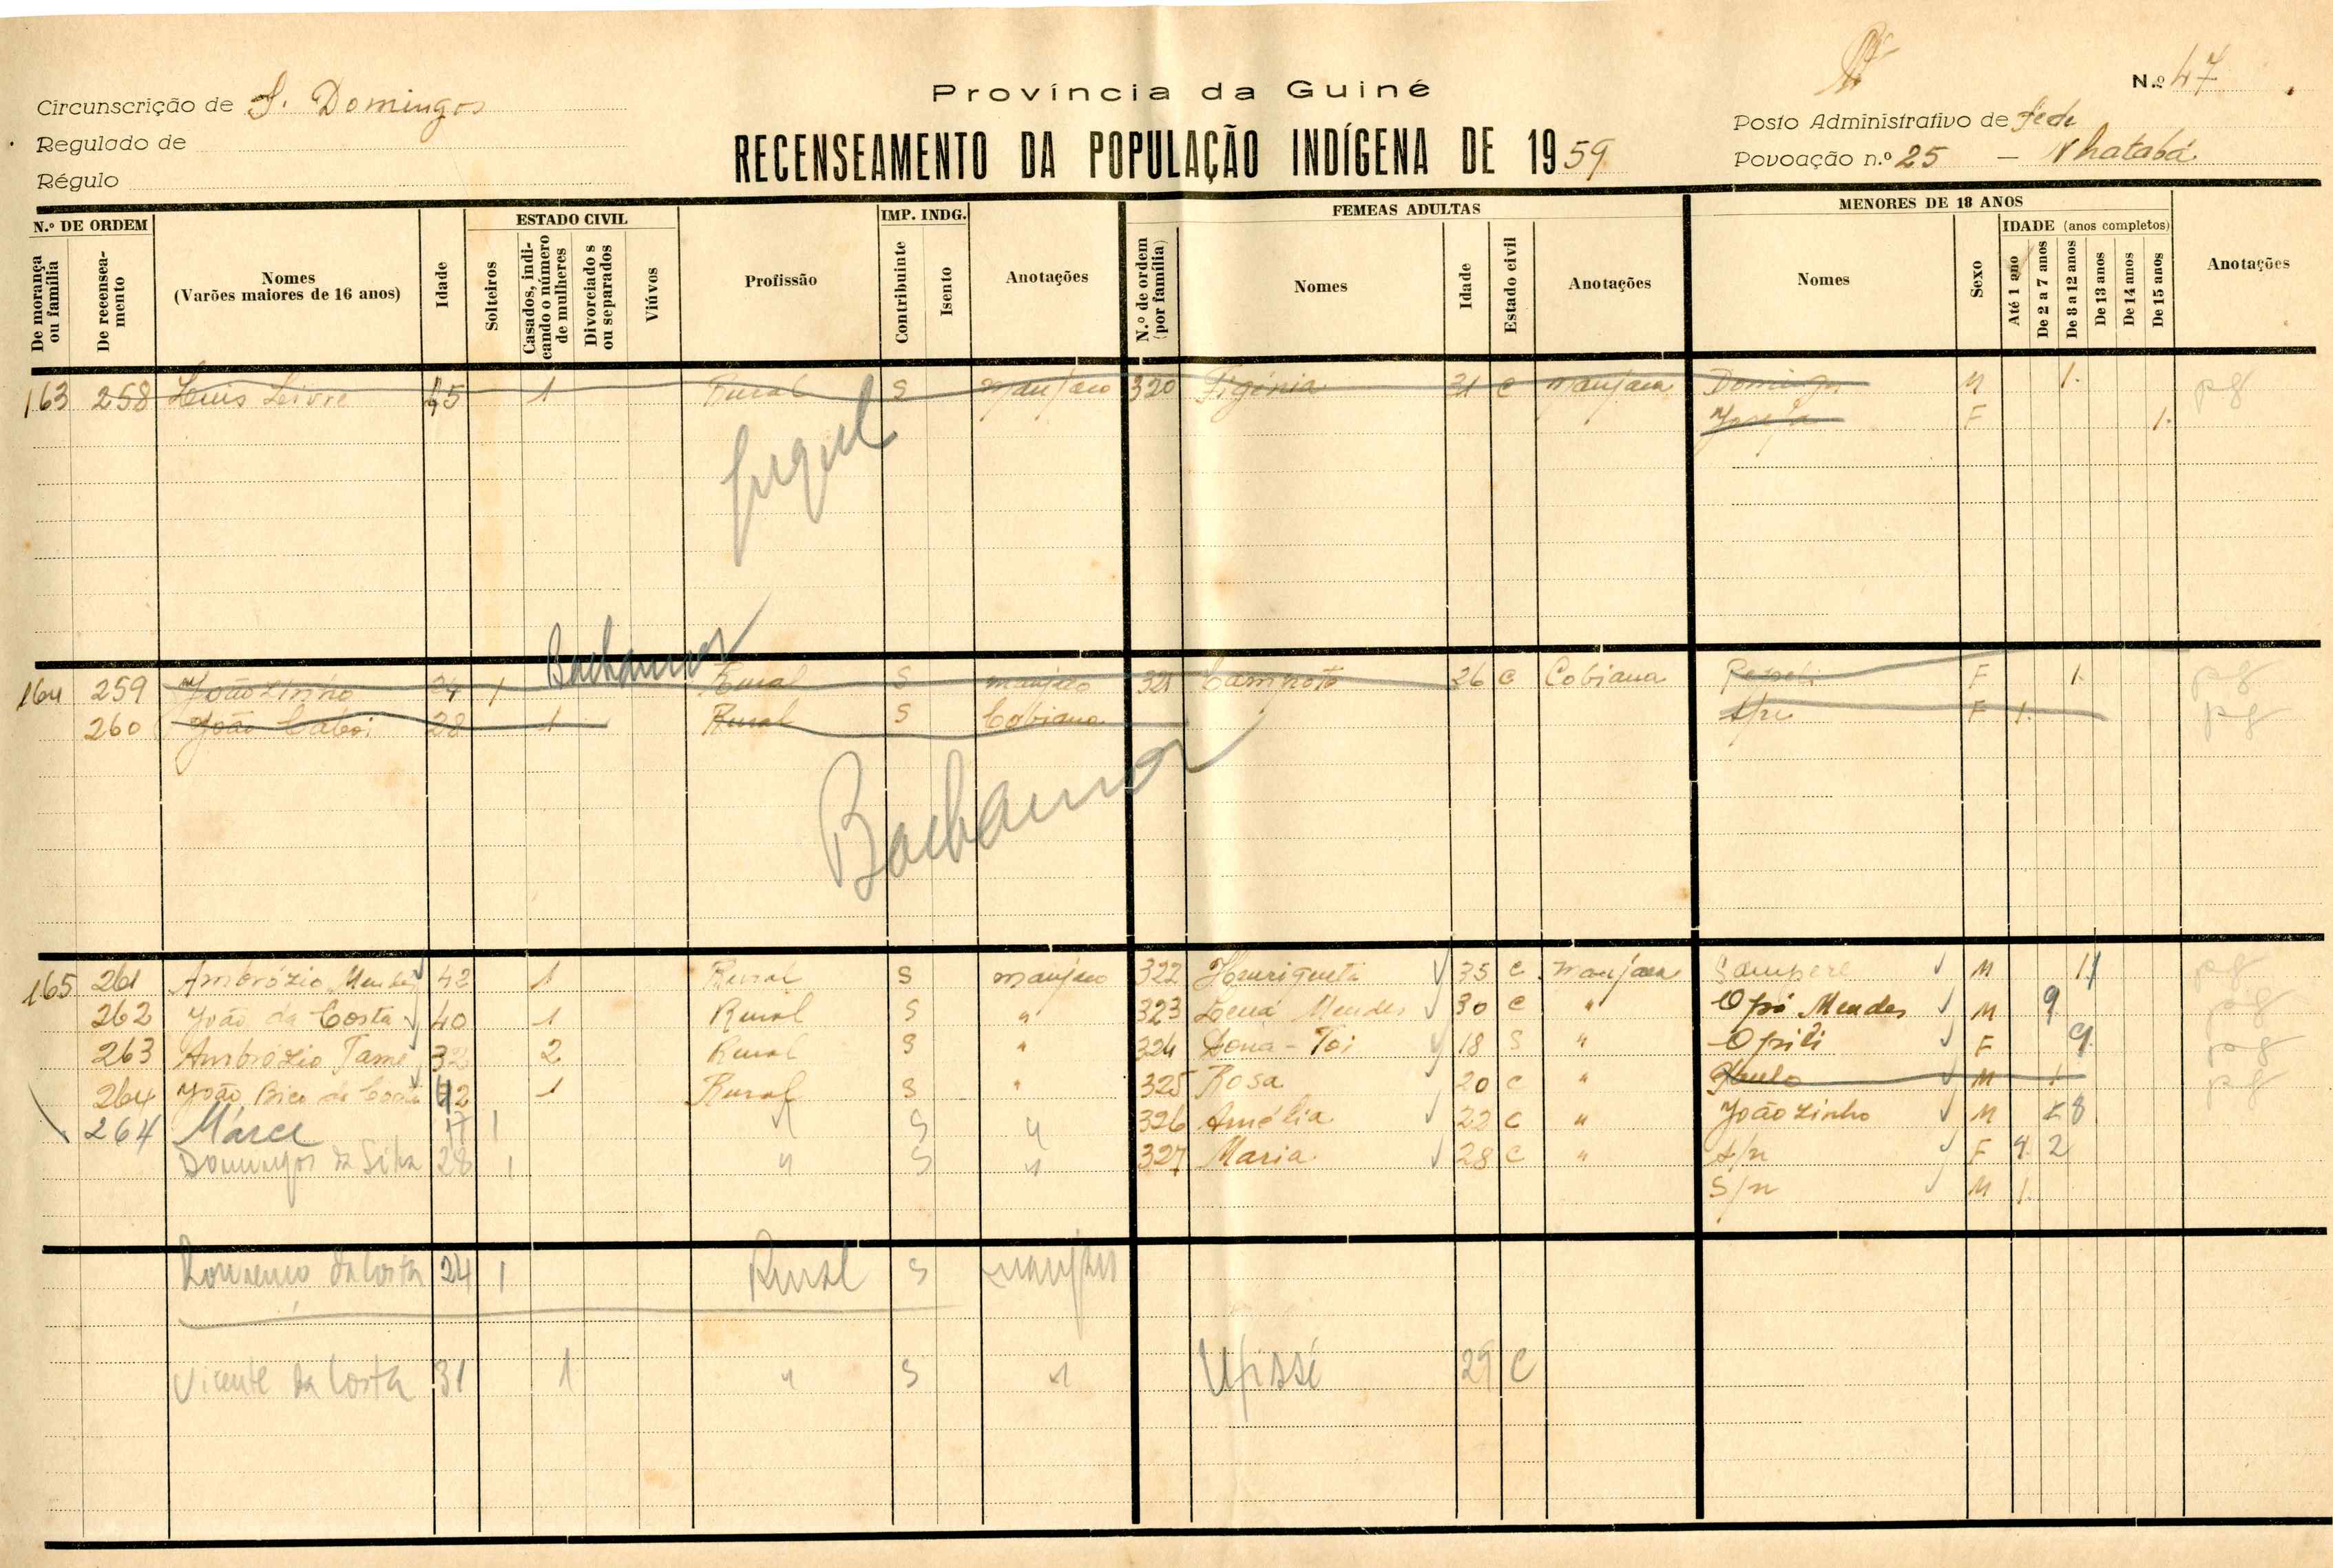 Província da Guiné
N.º 47
Circunscrição de S. Domingos
Regulado de
Régulo
RECENSEAMENTO DA POPULAÇÃO INDÍGENA DE 1959
Posto Administrativo de Sede
Povoação n.º 25 — Nhatabá
N.º DE ORDEM
De morança ou família
De recenseamento
Nomes
(Varões maiores de 16 anos)
Idade
ESTADO CIVIL
Solteiros
Casados, indicando o número de mulheres
Divorciados ou separados
Viúvos
Profissão
IMP. INDG.
Contribuinte
Isento
Anotações
FEMEAS ADULTAS
N.º de ordem (por família)
Nomes
Idade
Estado civil
Anotações
MENORES DE 18 ANOS
Nomes
Sexo
IDADE (anos completos)
Até 1 ano
De 2 a 7 anos
De 8 a 12 anos
De 13 anos
De 14 anos
De 15 anos
Anotações
163 258 Luis Livre 45 1 Rural S manjaco 320 Figénia 31 C manjaca Domingos M 1. pg
Josefa F 1.
Bachamor
164 259 Joãozinho 24 1 Rural S manjaco 321 26 C Cobiana F 1. pg
260 João Caboi 28 1 Rural S Cobiana S/n F 1. pg
Bachamor
165 261 Ambrózio Mendes 42 1 Rural S manjaco 322 Henriqueta 35 C manjaca Sampere M 11 pg
262 João da Costa 40 1 Rural S " 323 Mendes 30 C " Opó Mendes M 9 pg
263 Ambrózio Tame 32 2 Rural S " 324 Dona-Toi 18 S " Opili F 9 pg
264 João Bico da Costa 42 1 Rural S " 325 Rosa 20 C " Paulo M 1 pg
264 Marce 17 1 " S " 326 Amélia 22 C " Joãozinho M 8
Domingos da Silva 28 1 " S " 327 Maria 28 C " S/n F 2
S/n M 1.
Lourenço da Costa 24 1 Rural S manjaco
Vicente da Costa 31 1 " S " Upissé 29 C